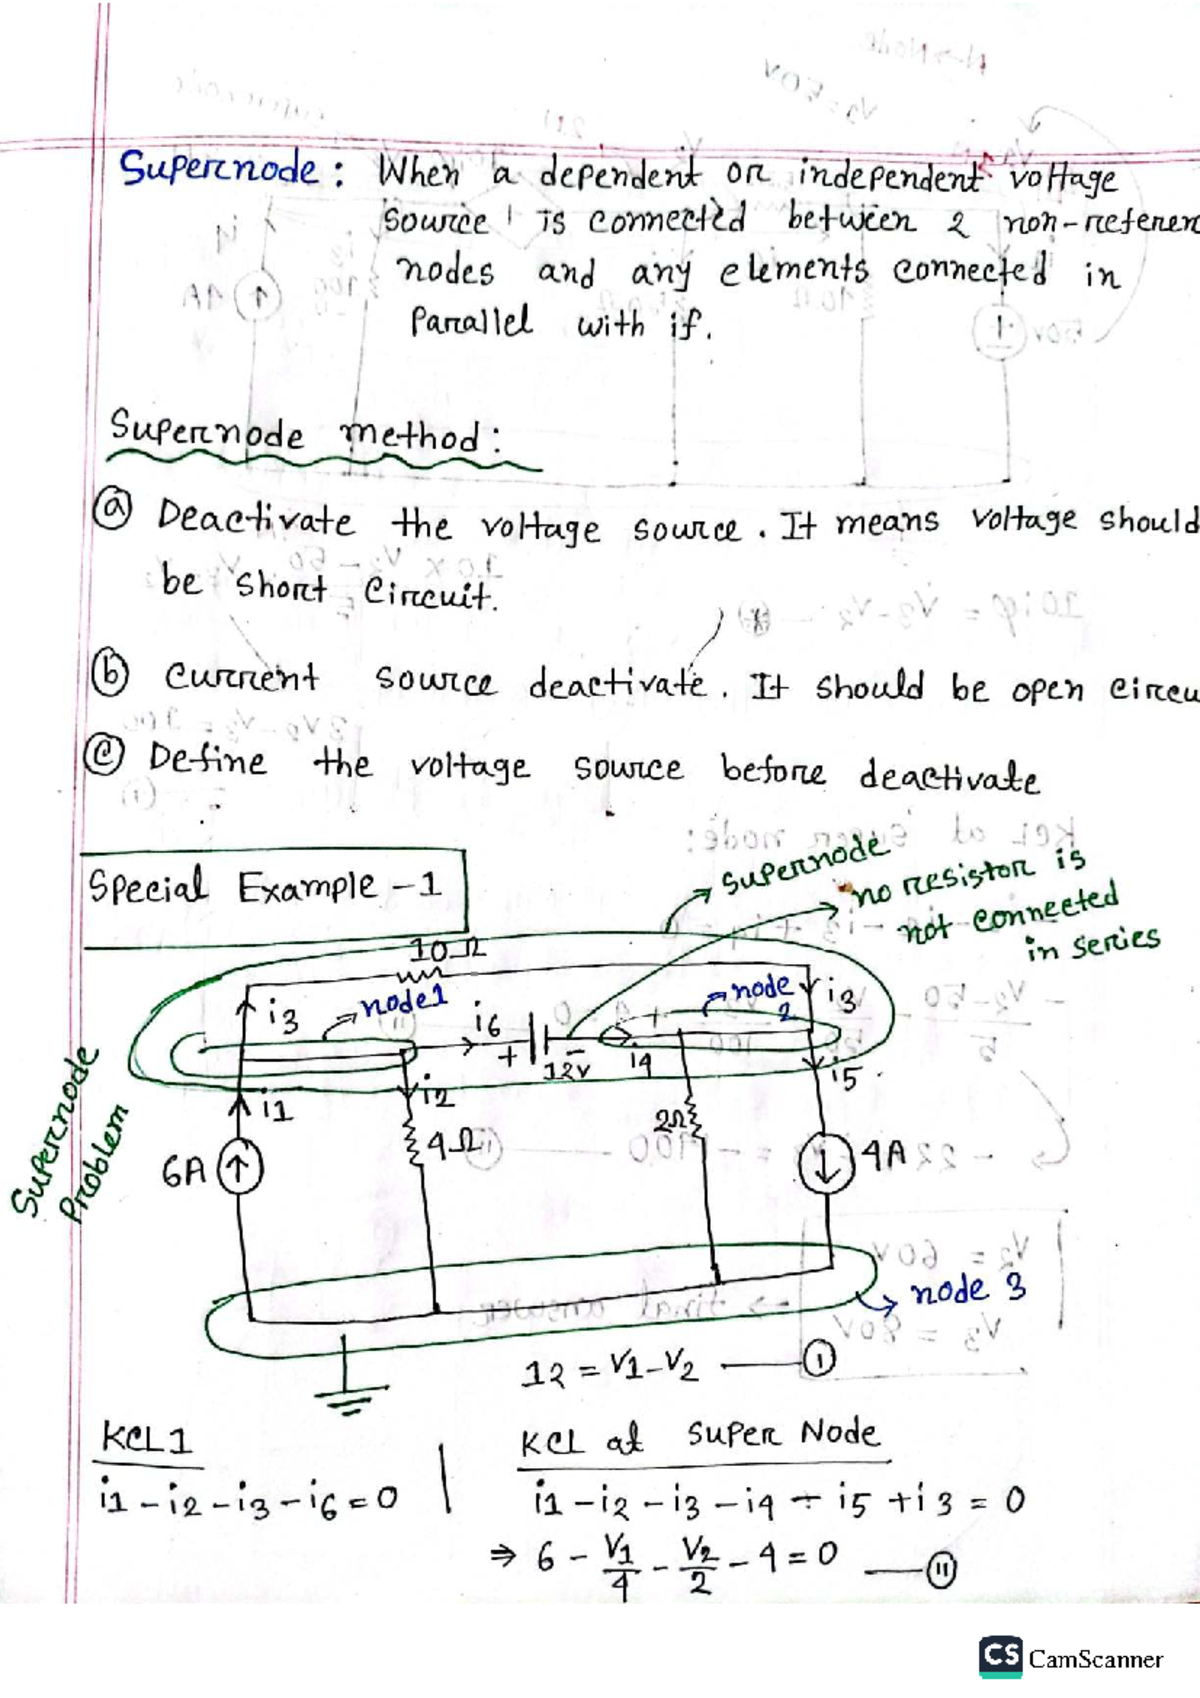 Supernode: When a dependent or independent voltage
source is connected between 2 non-referen
nodes and any elements connected in
Parallel with it.
Supernode method:
(a) Deactivate the voltage source. It means voltage should
be short circuit.
(b) Current source deactivate. It should be open circu
(c) Define the voltage source before deactivate
Special Example-1
supernode
no resistor is
not connected
in series
10Ω
node1
node
2
i3
i6
i3
+
-
12v
i4
i1
i2
i5
6A
4Ω
2Ω
4A
Supernode
Problem
node 3
12 = V1-V2 —— (I)
KCL1
i1-i2-i3-i6=0
KCL at Super Node
i1-i2-i3-i4-i5+i3=0
⇒ 6 - V1/4 - V2/2 - 4=0 —— (II)
CS CamScanner